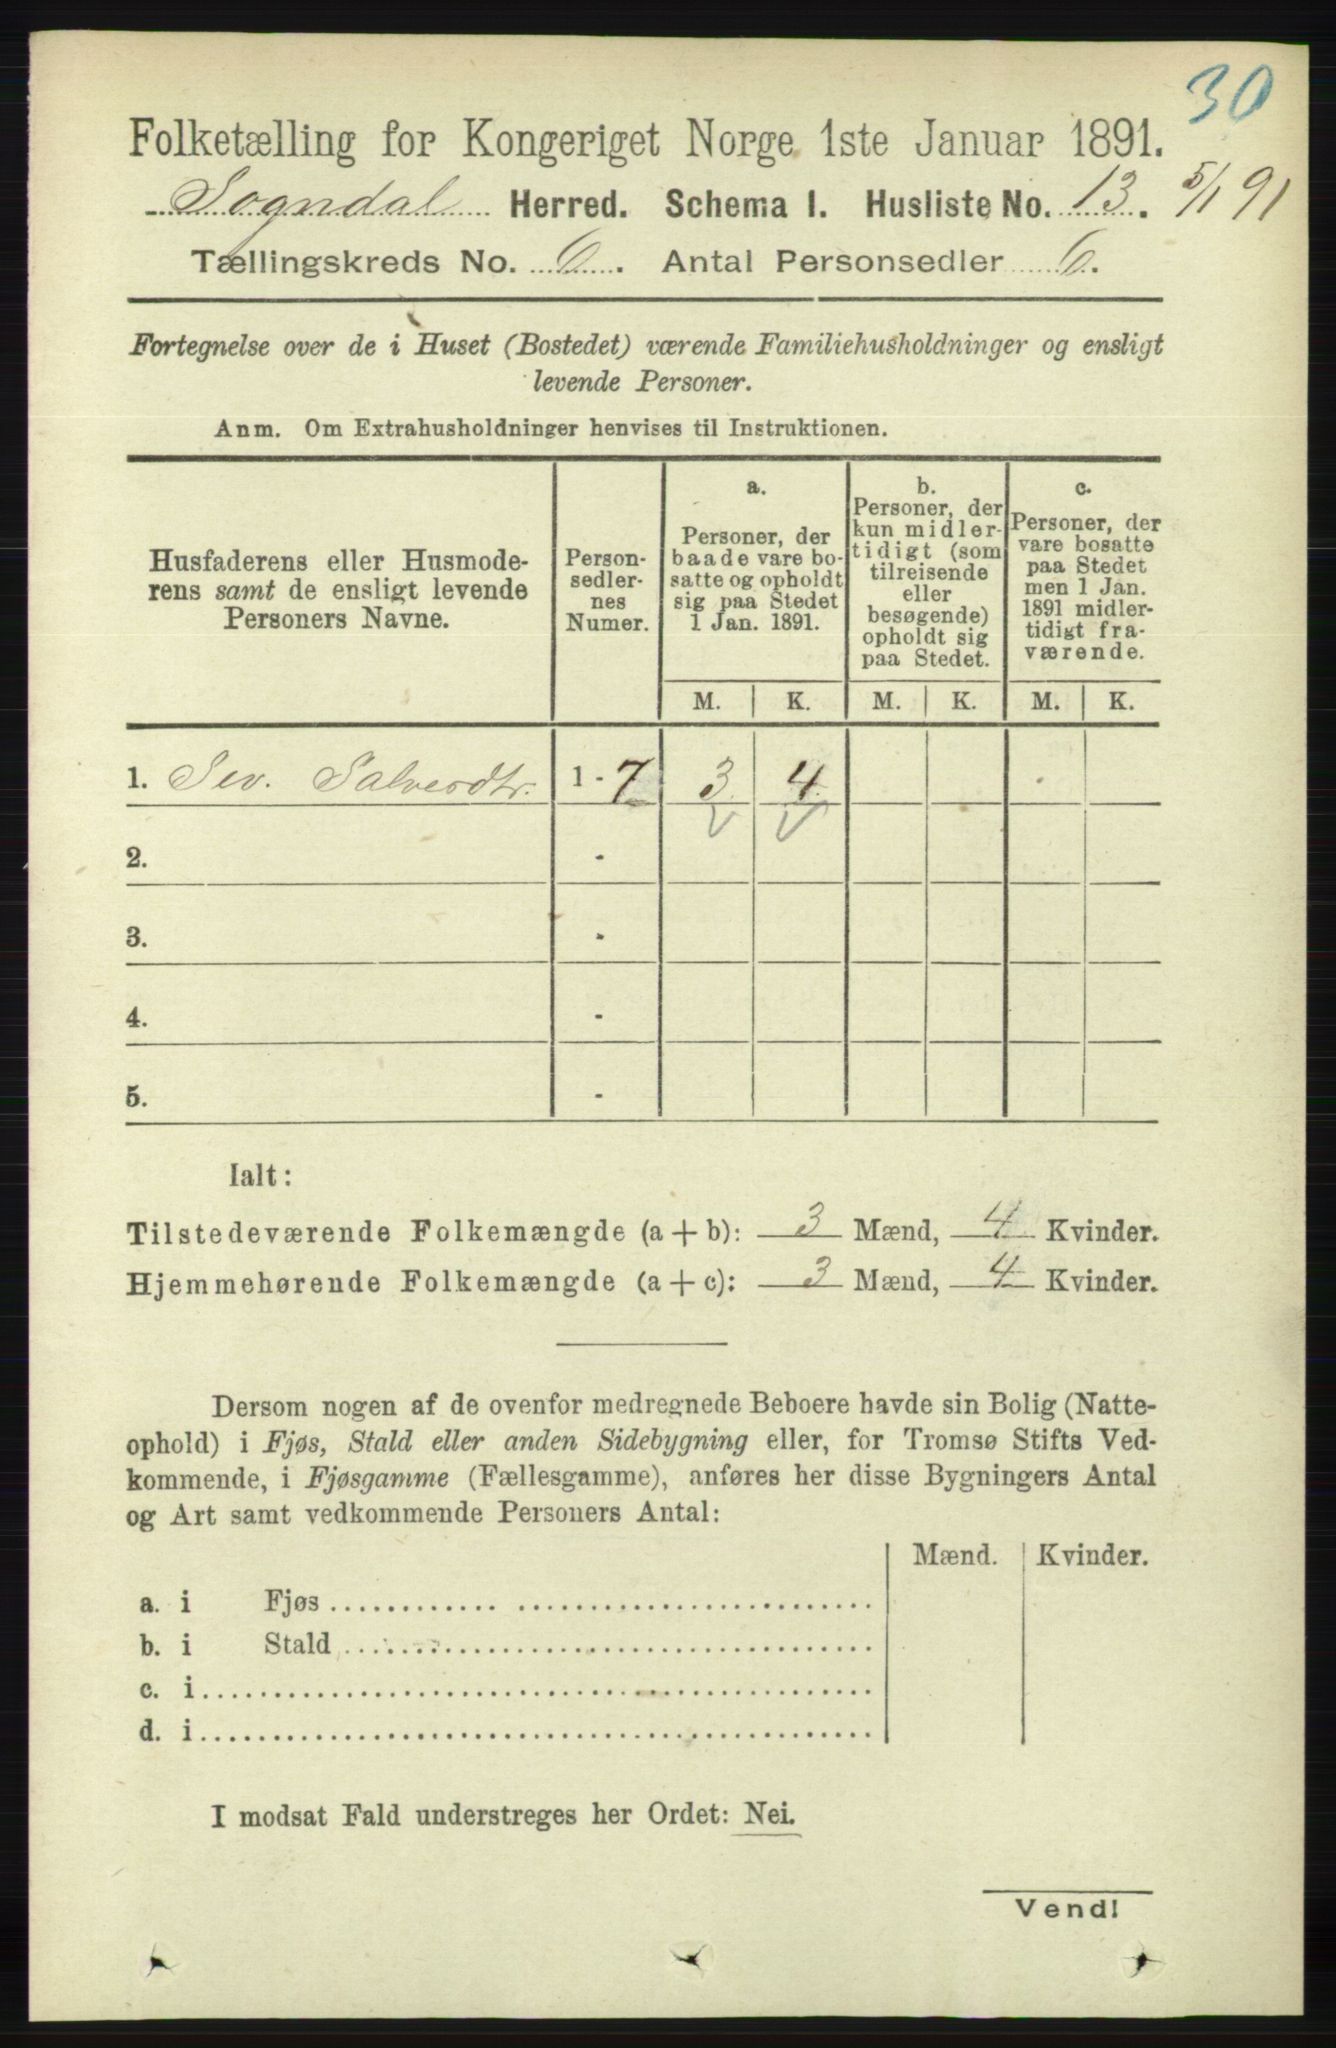 30
Folketælling for Kongeriget Norge 1ste Januar 1891.
Sogndal Herred. Schema I. Husliste No. 13. 5/1 91
Tællingskreds No. 6. Antal Personsedler 6.
Fortegnelse over de i Huset (Bostedet) værende Familiehusholdninger og ensligt
levende Personer.
Anm. Om Extrahusholdninger henvises til Instruktionen.
Husfaderens eller Husmode-
rens samt de ensligt levende
Personers Navne.
Person-
sedler-
nes
Numer.
a.
Personer, der
baade vare bo-
satte og opholdt
sig paa Stedet
1 Jan. 1891.
b.
Personer, der
kun midler-
tidigt (som
tilreisende
eller
besøgende)
opholdt sig
paa Stedet.
c.
Personer, der
vare bosatte
paa Stedet
men 1 Jan.
1891 midler-
tidigt fra-
værende.
M. K. M. K. M. K.
1. Sev. Salvesdtr. 1 - 7 3 4
2. -
3. -
4. -
5. -
Ialt:
Tilstedeværende Folkemængde (a + b): 3 Mænd, 4 Kvinder.
Hjemmehørende Folkemængde (a + c): 3 Mænd, 4 Kvinder.
Dersom nogen af de ovenfor medregnede Beboere havde sin Bolig (Natte-
ophold) i Fjøs, Stald eller anden Sidebygning eller, for Tromsø Stifts Ved-
kommende, i Fjøsgamme (Fællesgamme), anføres her disse Bygningers Antal
og Art samt vedkommende Personers Antal:
Mænd. Kvinder.
a. i Fjøs
b. i Stald
c. i
d. i
I modsat Fald understreges her Ordet: Nei.
Vend!